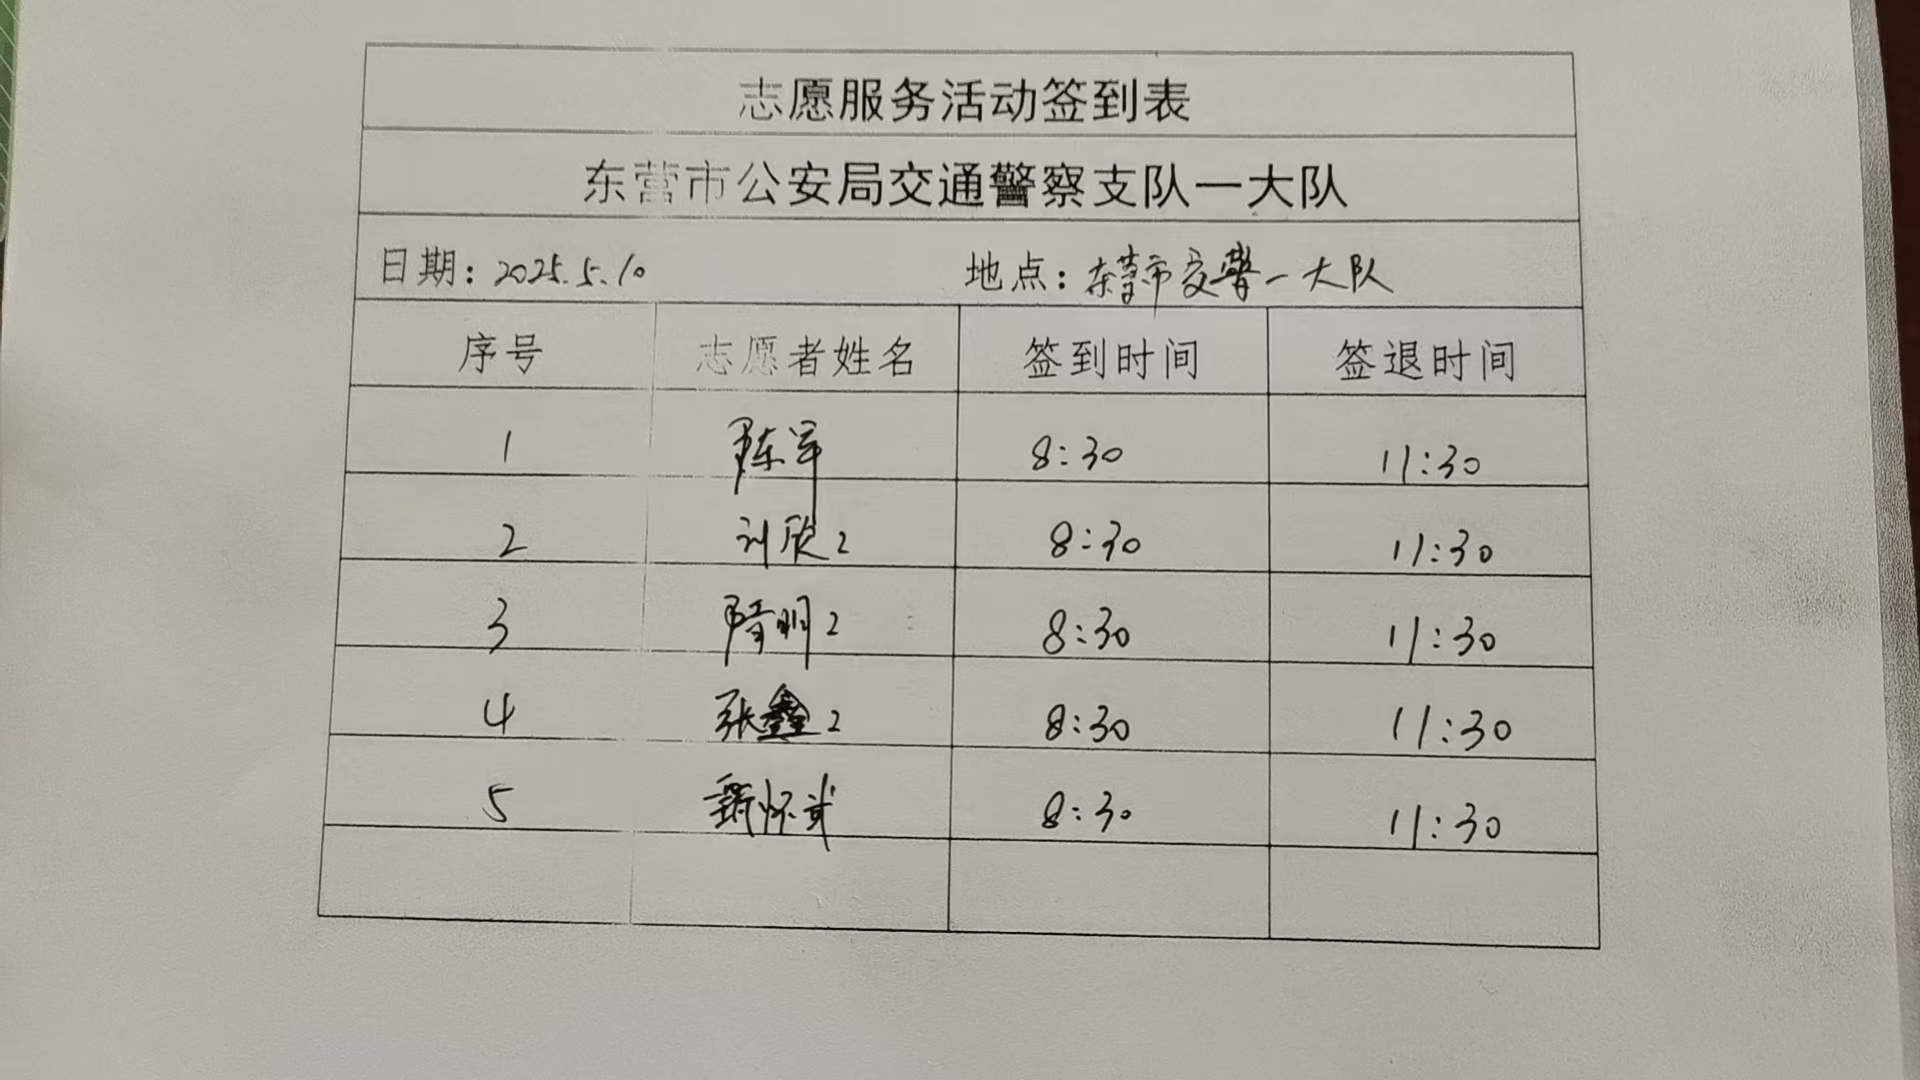 志愿服务活动签到表
东营市公安局交通警察支队一大队
日期：2025.5.10 地点：东营市交警一大队
序号 志愿者姓名 签到时间 签退时间
1 陈军 8:30 11:30
2 刘欣2 8:30 11:30
3 隋明2 8:30 11:30
4 张鑫2 8:30 11:30
5 怀武 8:30 11:30